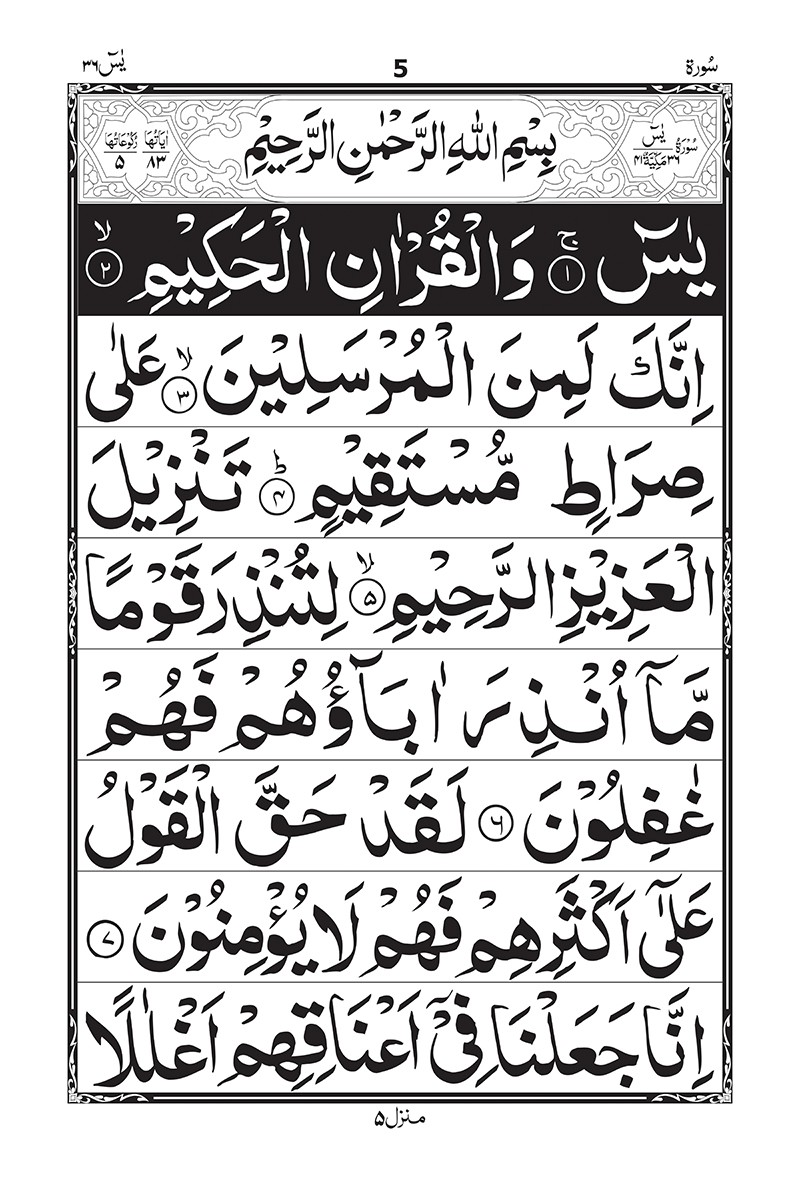 سُورۃ 5 یٰسٓ ۳۶
سُورَۃُ یٰسٓ ۳۶ مَکِّیَّۃٌ ۴۱ بِسْمِ اللهِ الرَّحْمٰنِ الرَّحِیْمِ اٰیَاتُهَا ۸۳ رُکُوْعَاتُهَا ۵
یٰسٓ ۚ﴿۱﴾ وَالْقُرْاٰنِ الْحَکِیْمِ ۙ﴿۲﴾
اِنَّکَ لَمِنَ الْمُرْسَلِیْنَ ۙ﴿۳﴾ عَلٰی
صِرَاطٍ مُّسْتَقِیْمٍ ؕ﴿۴﴾ تَنْزِیْلَ
الْعَزِیْزِ الرَّحِیْمِ ۙ﴿۵﴾ لِتُنْذِرَ قَوْمًا
مَّاۤ اُنْذِرَ اٰبَآؤُهُمْ فَهُمْ
غٰفِلُوْنَ ﴿۶﴾ لَقَدْ حَقَّ الْقَوْلُ
عَلٰۤی اَکْثَرِهِمْ فَهُمْ لَا یُؤْمِنُوْنَ ﴿۷﴾
اِنَّا جَعَلْنَا فِیْۤ اَعْنَاقِهِمْ اَغْلٰلًا
منزل ۵